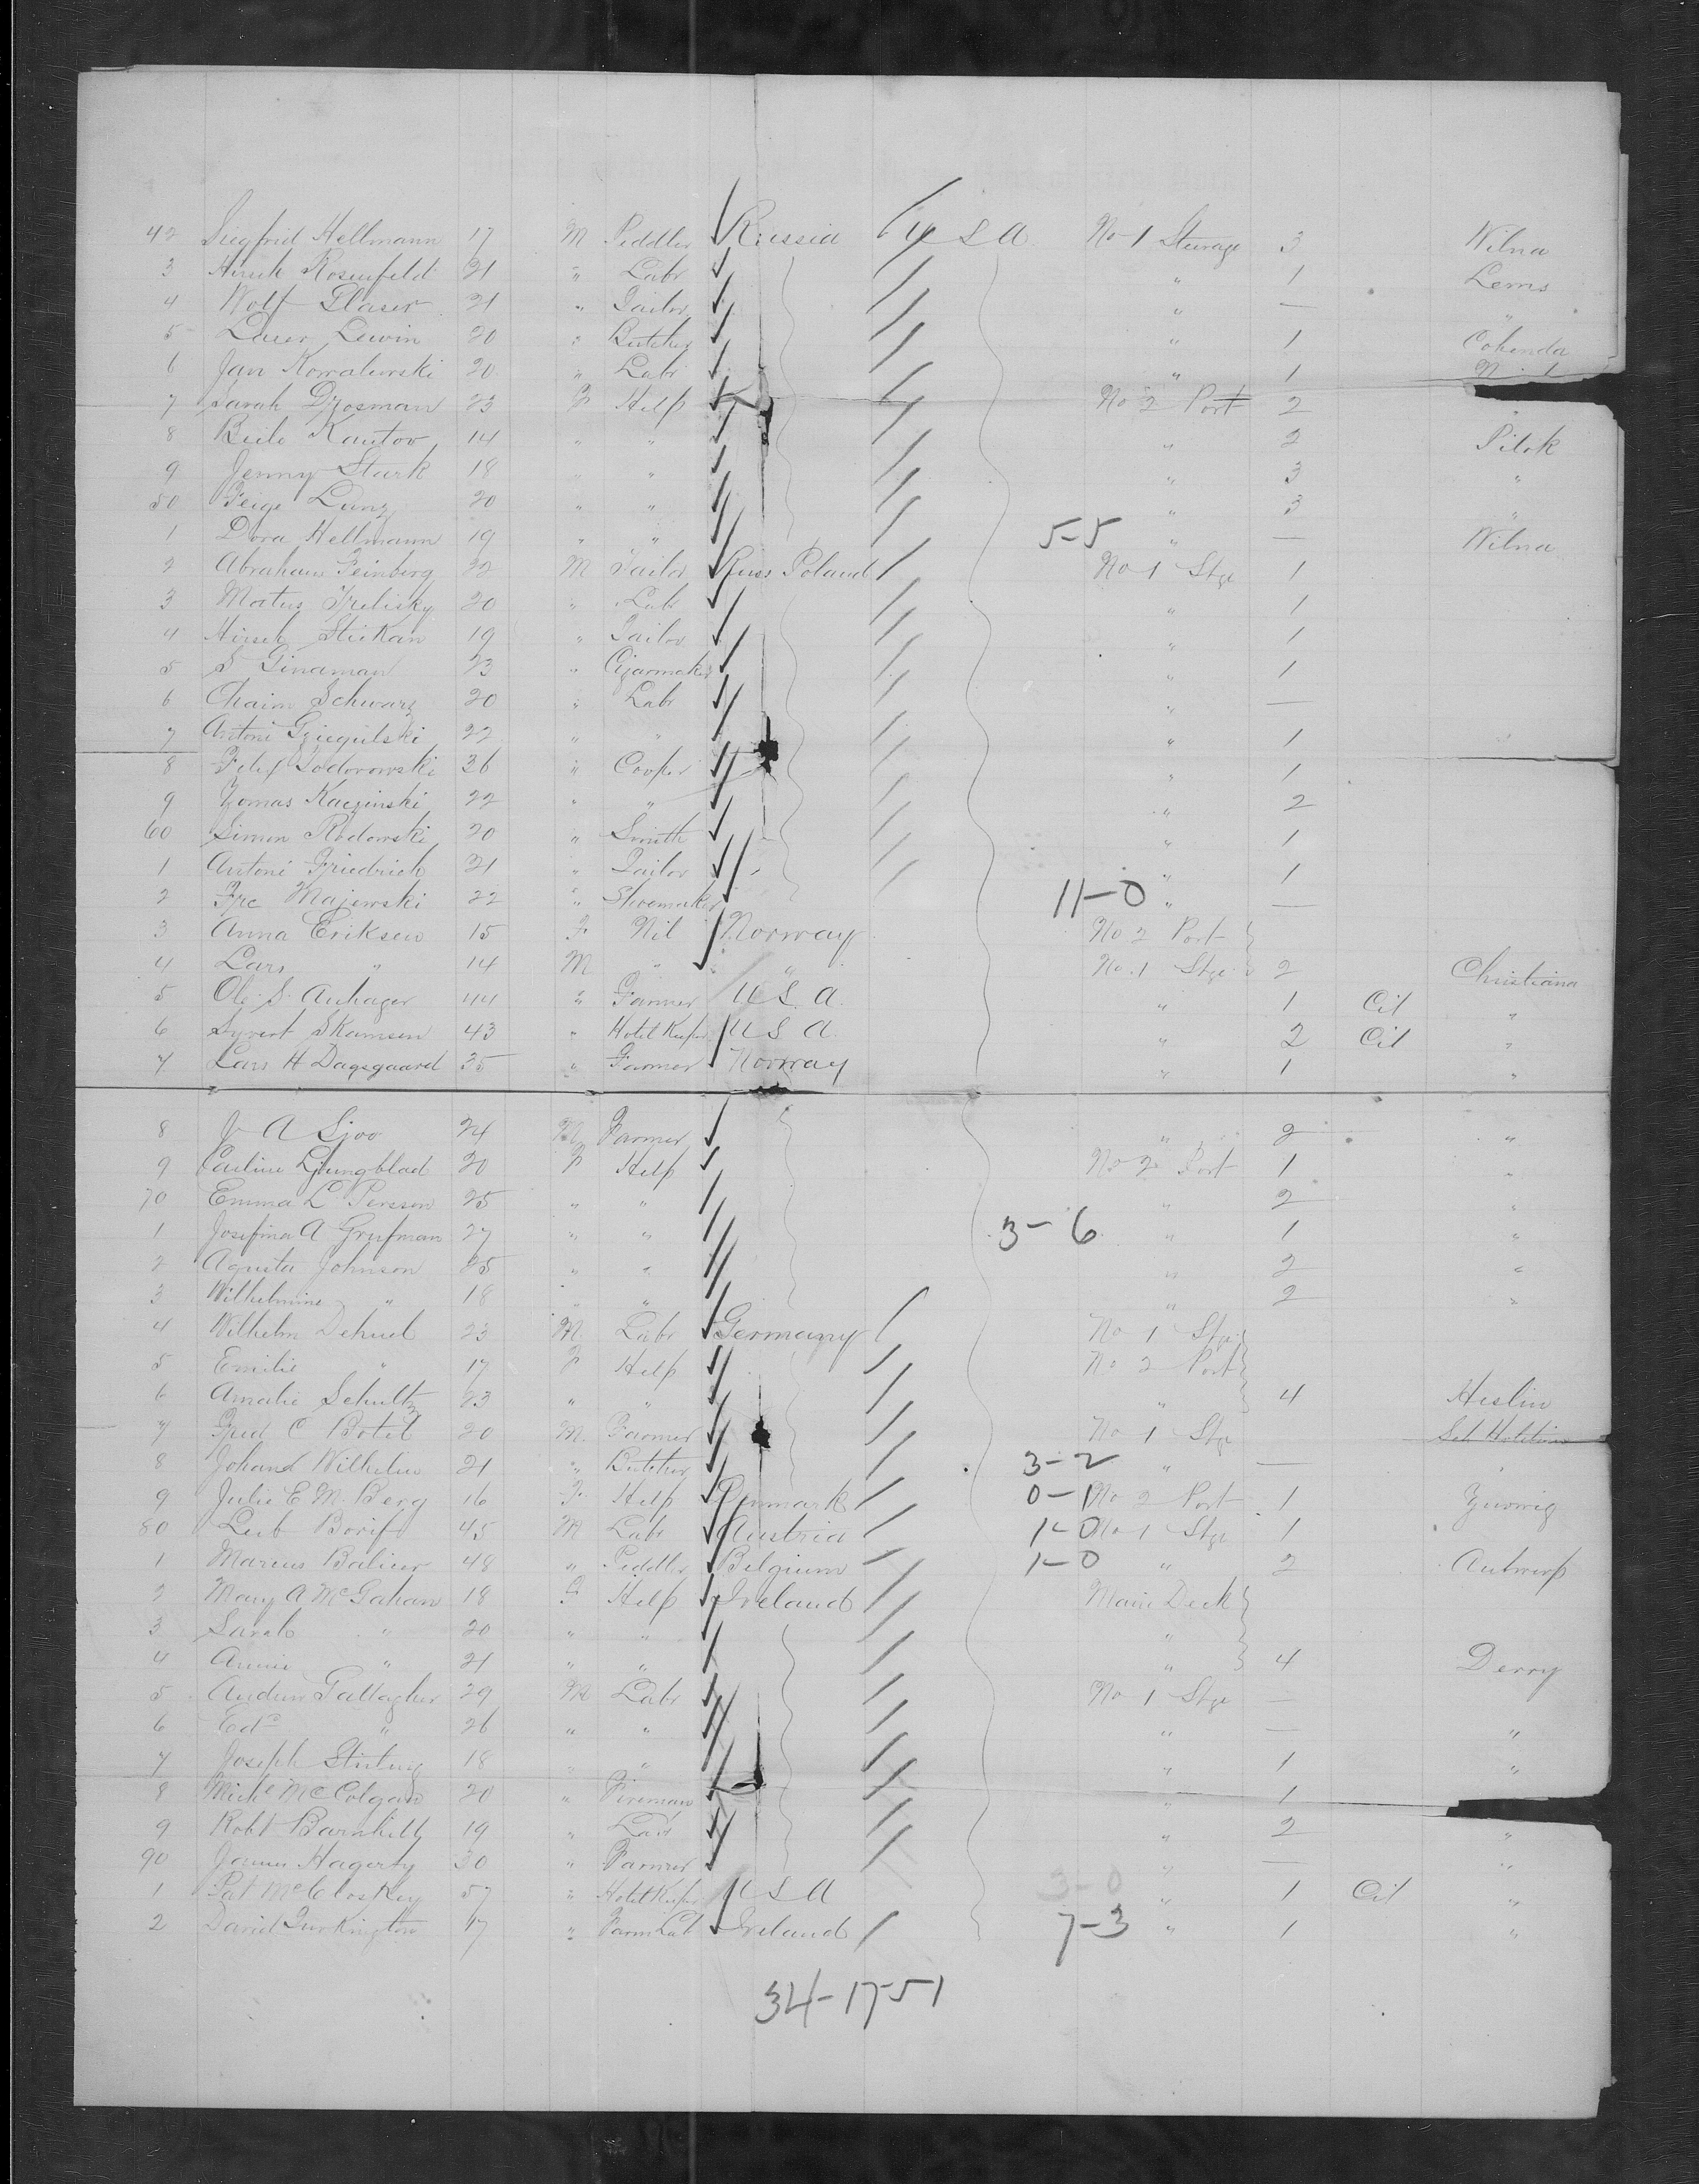 42 Siegfrid Hellmann 17 M Peddler Russia U S A No 1 Steerage 3 Wilna
3 Hirsch Rosenfeld 21 " Labr " 1 Lems
4 Wolf Glaser 21 " Tailor " — "
5 Laser Lewin 20 " Butcher " 1
6 Jan Kowalewski 20 " Labr " 1
7 Sarah 23 F Help No 2 Port 2
8 Beile Kantov 14 " " " 2 Pilok
9 Jenny Stark 18 " " " 3 "
50 Feige Lunz 20 " " " 3 "
1 Dora Hellmann 19 " " 5-5 " — Wilna
2 Abraham Feinberg 22 M Tailor Russ Poland No 1 Stge 1
3 Matus 20 " Labr " 1
4 Hirsch 19 " Tailor " 1
5 S Ginaman 23 " Cigarmaker " 1
6 Chaim Schwarz 20 " Labr " —
7 Antoni 22 " " " 1
8 Felix Todorowski 36 " Cooper " 1
9 Tomas Kaczinski 22 " " " 2
60 Simon Rodowski 20 " Smith " 1
1 Antoni Friedrich 21 " Tailor " 1
2 Majewski 22 " Shoemaker 11-0 " —
3 Anna Eriksen 15 F Nil Norway No 2 Port
4 Lars " 14 M " " No 1 Stge 2 Christiana
5 Ole S. Anhager 44 " Farmer U S A. " 1 Cit "
6 Syvert Skamsen 43 " Hotel Keeper U S A. " 2 Cit "
7 Lars H Dagsgaard 35 " Farmer Norway " 1 "
8 J A Sjoo 24 M Farmer " 2 "
9 Ljungblad 20 F Help No 2 Port 1 "
70 Emma L Persson 25 " " " 2 "
1 Josefina A Grufman 27 " " 3-6 " 1 "
2 Agusta Johnson 25 " " " 2 "
3 Wilhelmine " 18 " " " 2 "
4 Wilhelm 23 M Labr Germany No 1 Stge
5 Emilie " 17 F Help No 2 Port
6 Amalie Schultz 23 " " " 4
7 Fred C 20 M. Farmer No 1 Stge
8 Johand Wilhelm 21 " Butcher 3-2 " —
9 Julie E M. Berg 16 F Help Denmark 0-1 No 2 Port 1
80 Leib 45 M Labr Austria 1-0 No 1 Stge 1
1 Marcus 48 " Peddler Belgium 1-0 " 2 Antwerp
2 Mary A McGahan 18 F Help Ireland Main Deck
3 Sarah " 20 " " "
4 Annie " 21 " " " 4 Derry
5 Andrew Gallagher 29 M Labr No 1 Stge —
6 Edd " 26 " " " — "
7 Joseph 18 " " " 1 "
8 Michl McColgan 20 " Fireman " 1
9 Robt Barnhill 19 " Labr " 2 "
90 James Hagerty 30 " Farmer " — "
1 Pat McCloskey 57 " Hotel Keeper U S A 3-0 " 1 Cit "
2 David Turkington 17 " Farm Lab Ireland 7-3 " 1 "
34-17-51